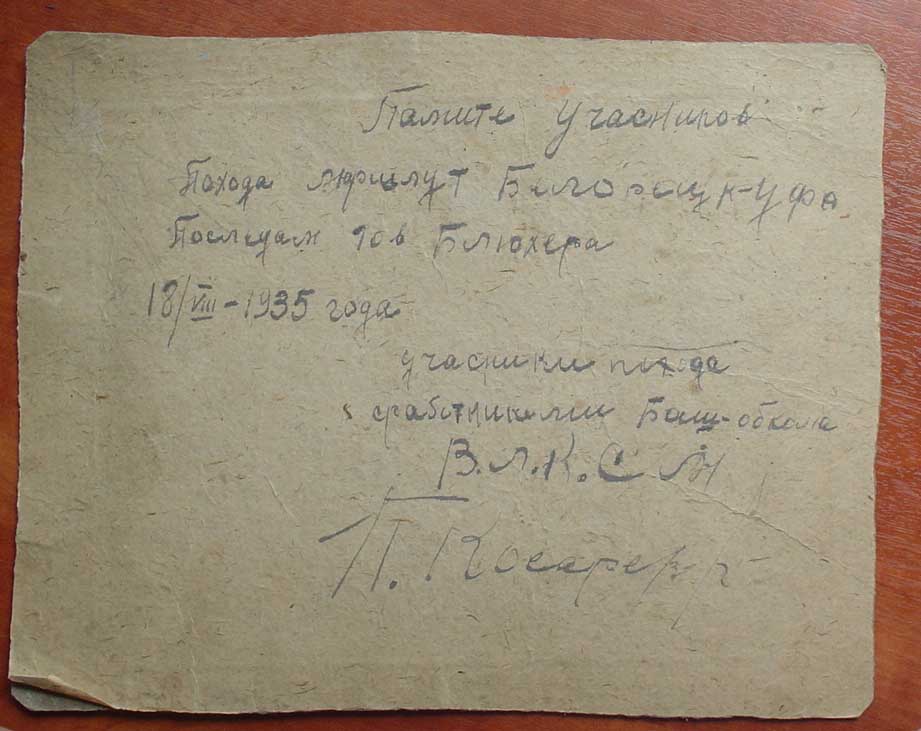 Памите участников
Похода маршрут Белорецк-Уфа
Последам тов Блюхера
18/VIII-1935 года
учасники похода
сработниками Баш-обкома
В.Л.К.С.М
П. Косарев